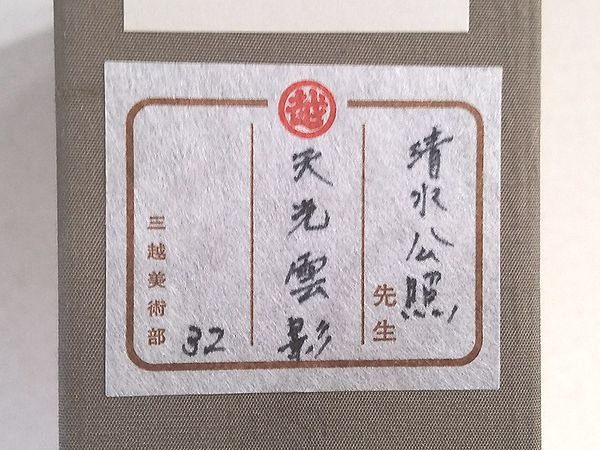 清水公照
先生
越
天光雲影
32
三越美術部